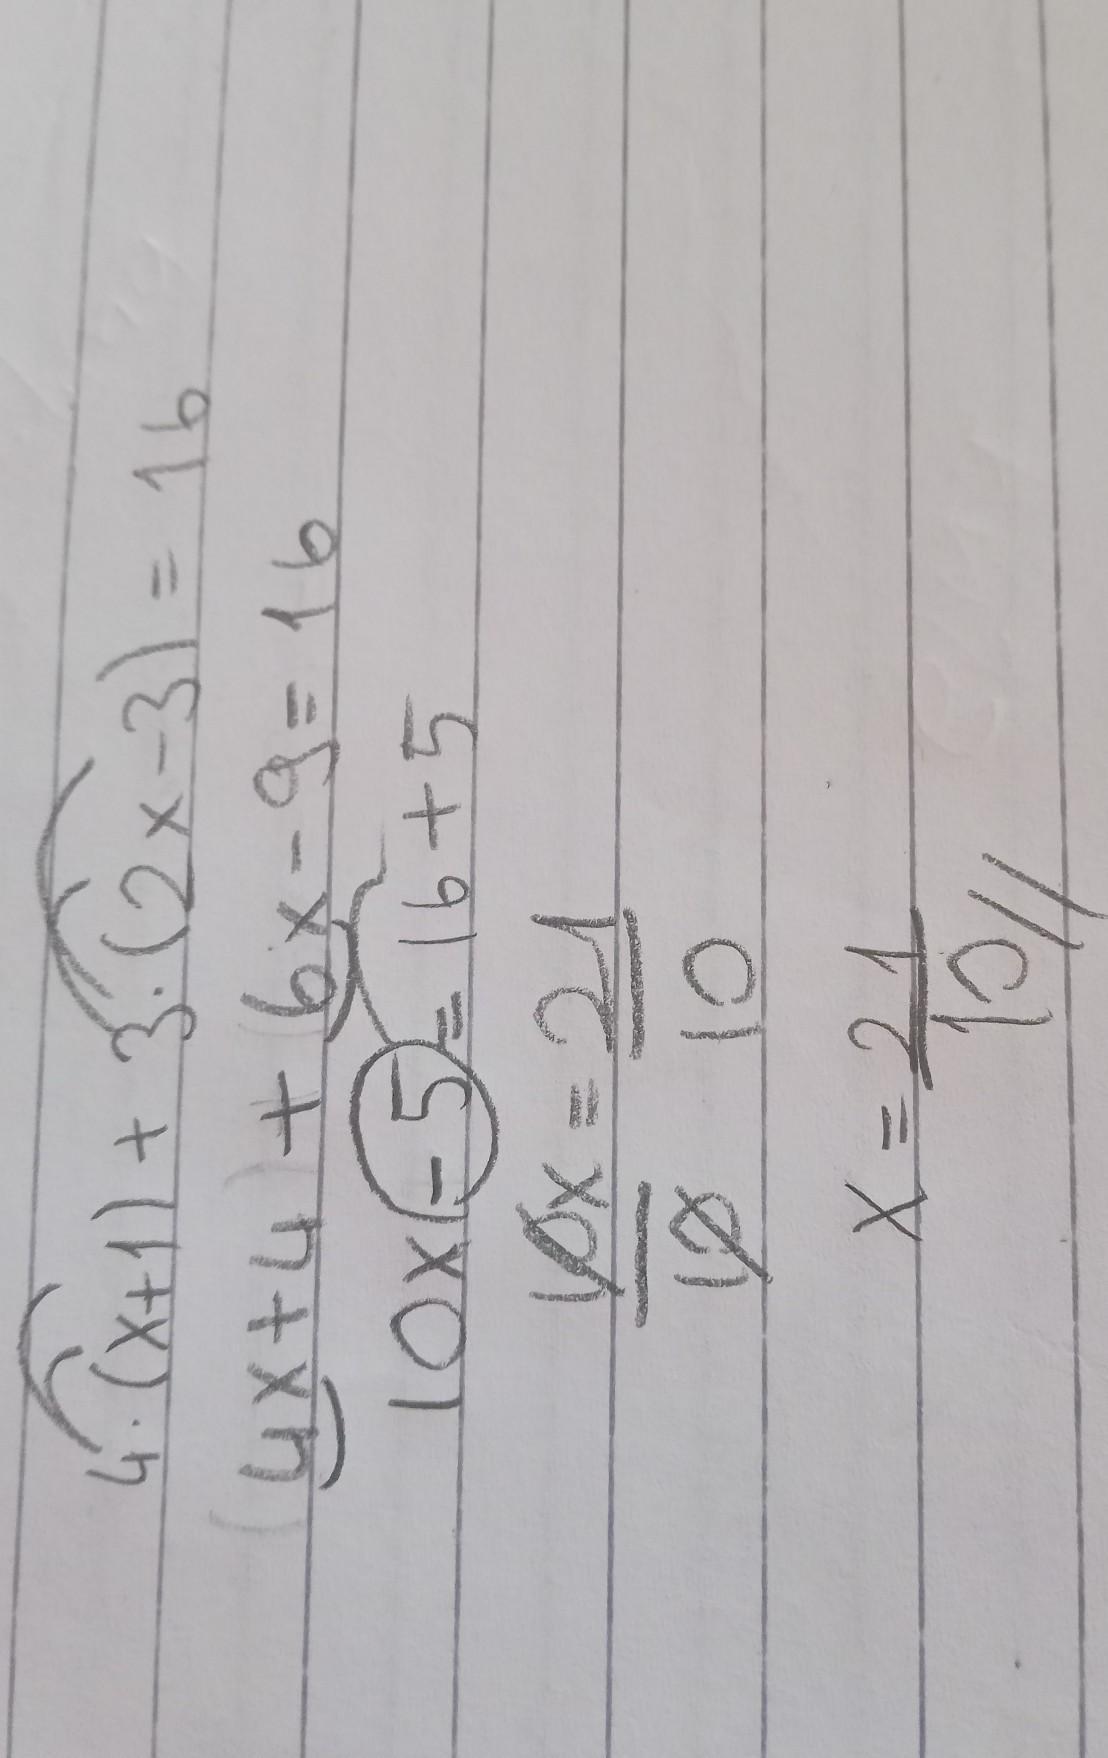 4·(x+1) + 3·(2x-3) = 16
(4x+4) + (6x-9=16
10x-5=16+5
10x = 21
10 10
x = 21
10//